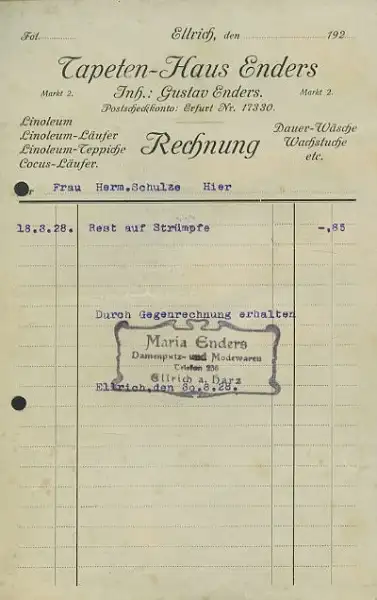 Fol. Ellrich, den 192
Tapeten-Haus Enders
Markt 2. Inh.: Gustav Enders. Markt 2.
Postscheckkonto: Erfurt Nr. 17330.
Linoleum
Linoleum-Läufer
Linoleum-Teppiche
Cocus-Läufer.
Rechnung
Dauer-Wäsche
Wachstuche
etc.
Frau Herm.Schulze Hier
18.8.28. Rest auf Strümpfe -.85
Durch Gegenrechnung erhalten
Maria Enders
Damenputz- und Modewaren
Ellrich a. Harz
Ellrich,den 30.8.28.